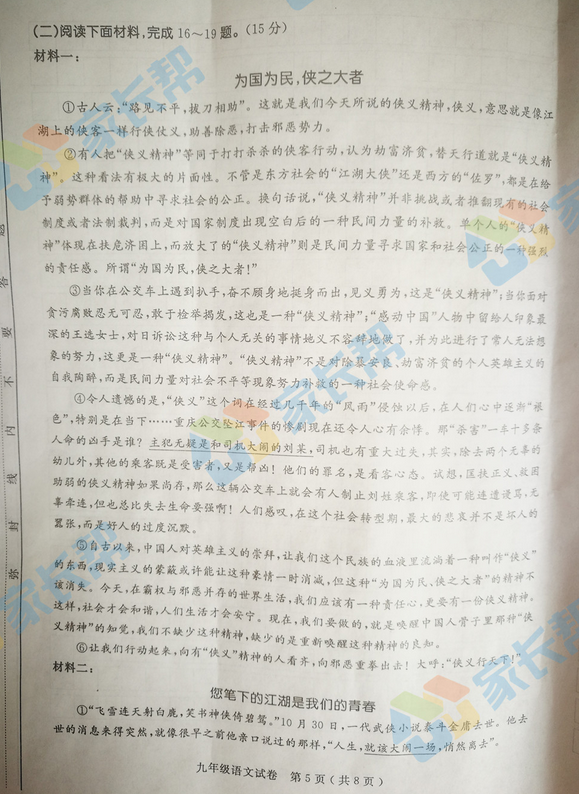 (二)阅读下面材料,完成16～19题。(15分)
材料一:
为国为民,侠之大者
①古人云:“路见不平,拔刀相助”。这就是我们今天所说的侠义精神,侠义,意思就是像江
湖上的侠客一样行侠仗义,助善除恶,打击邪恶势力。
②有人把“侠义精神”等同于打打杀杀的侠客行动,认为劫富济贫,替天行道就是“侠义精
神”。这种看法有极大的片面性。不管是东方社会的“江湖大侠”还是西方的“佐罗”,都是在给
予弱势群体的帮助中寻求社会的公正。换句话说,“侠义精神”并非挑战或者推翻现有的社会
制度或者法制裁判,而是对国家制度出现空白后的一种民间力量的补救。单个人的“侠义精
神”体现在扶危济困上,而放大了的“侠义精神”则是民间力量寻求国家和社会公正的一种强烈
的责任感。所谓“为国为民,侠之大者!”
③当你在公交车上遇到扒手,奋不顾身地挺身而出,见义勇为,这是“侠义精神”;当你面对
贪污腐败忍无可忍,敢于检举揭发,这也是一种“侠义精神”;“感动中国”人物中留给人印象最
深的王选女士,对日诉讼这种与个人无关的事情她义不容辞地做了,并为此进行了常人无法想
象的努力,这更是一种“侠义精神”。“侠义精神”不是对除暴安良、劫富济贫的个人英雄主义的
自我陶醉,而是民间力量对社会不平等现象努力补救的一种社会使命感。
④令人遗憾的是,“侠义”这个词在经过几千年的“风雨”侵蚀以后,在人们心中逐渐“褪
色”,特别是在当下……重庆公交坠江事件的惨剧现在还令人心有余悸。那“杀害”一车十多条
人命的凶手是谁?主犯无疑是和司机大闹的刘某,司机也有重大过失,其实,除去两个无辜的
幼儿外,其他的乘客既是受害者,又是帮凶!他们的罪名,是看客心态。试想,匡扶正义、救困
助弱的侠义精神如果尚存,那么这辆公交车上就会有人制止刘姓乘客,即使可能还遭谩骂,无
辜牵连,但也总比失去生命要强啊!人们感叹,在这个社会转型期,最大的悲哀并不是坏人的
嚣张,而是好人的过度沉默。
⑤自古以来,中国人对英雄主义的崇拜,让我们这个民族的血液里流淌着一种叫作“侠义”
的东西,现实主义的蒙蔽或许能让这种豪情一时消减,但这种“为国为民、侠之大者”的精神不
该消失。今天,在霸权与邪恶并存的世界生活,我们应该有一种责任心,更要有一份侠义精神。
这样,社会才会和谐,人们生活才会安宁。现在,我们要做的,就是唤醒中国人骨子里那种“侠
义精神”的知觉,我们不缺少这种精神,缺少的是重新唤醒这种精神的良知。
⑥让我们行动起来,向有“侠义”精神的人看齐,向邪恶重拳出击!大呼:“侠义行天下!”
材料二:
您笔下的江湖是我们的青春
①“飞雪连天射白鹿,笑书神侠倚碧鸳。”10月30日,一代武侠小说泰斗金庸去世。他去
世的消息来得突然,就像很早之前他亲口说过的那样,“人生,就该大闹一场,悄然离去”。
九年级语文试卷 第5页(共8页)
弥 封 线 内 不 要 答 题
家长帮